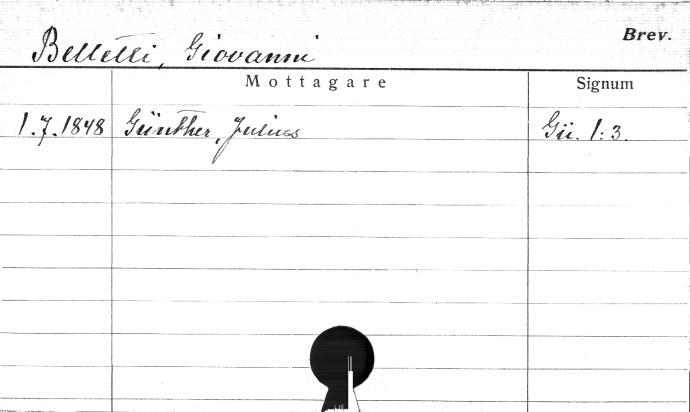 Brev.
Belletti, Giovanni
Mottagare Signum
1.7.1848 Günther, Julius Gü. 1:3.